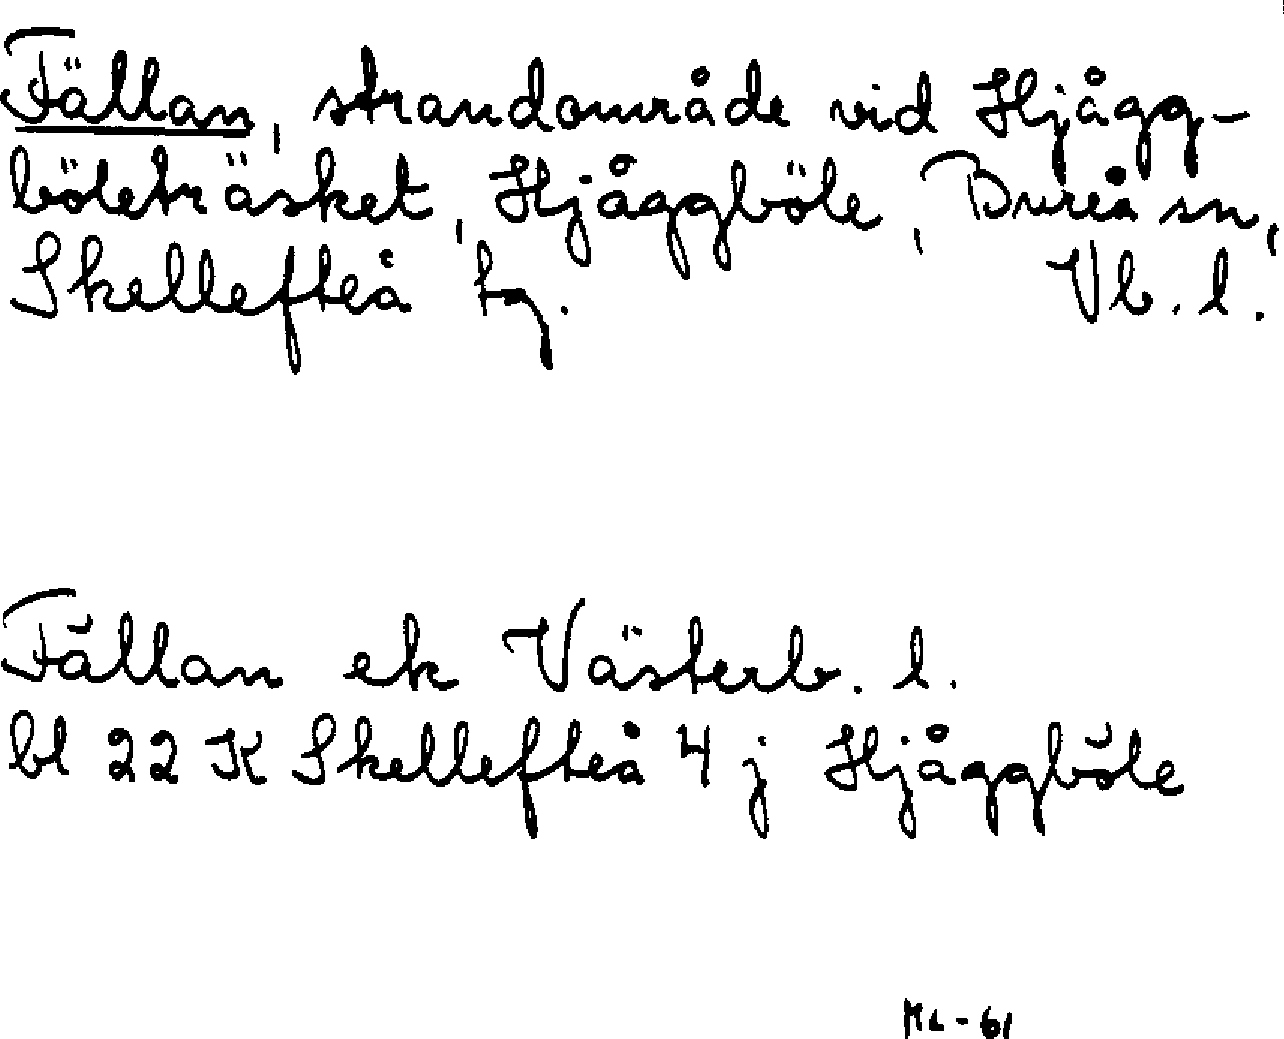 Fällan, strandområde vid Hjågg-
böleträsket, Hjåggböle, Bureå sn,
Skellefteå tg. Vb. l.
Fällan ek Västerb. l.
bl 22 K Skellefteå 4 j Hjåggböle
ML-61